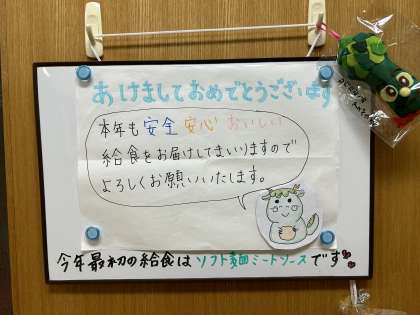 あけましておめでとうございます
本年も安全安心おいしい
給食をお届けしてまいりますので
よろしくお願いいたします。
今年最初の給食はソフト麺ミートソースです